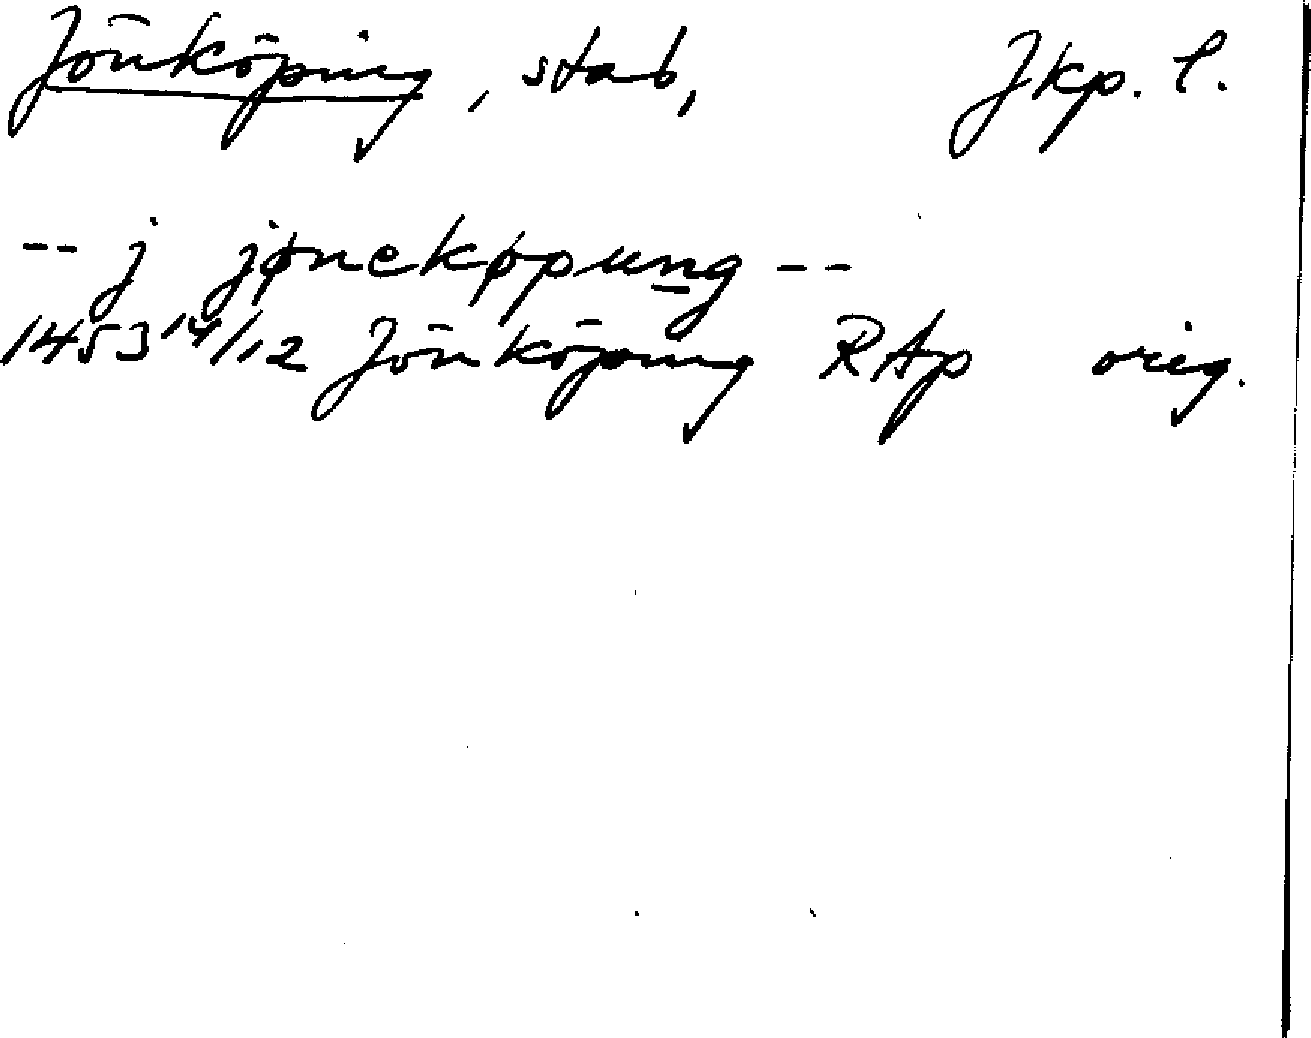 Jönköping, stab, Jkp. l.
-- j jønekøpung --
1453 14/12 Jönköping RAp orig.